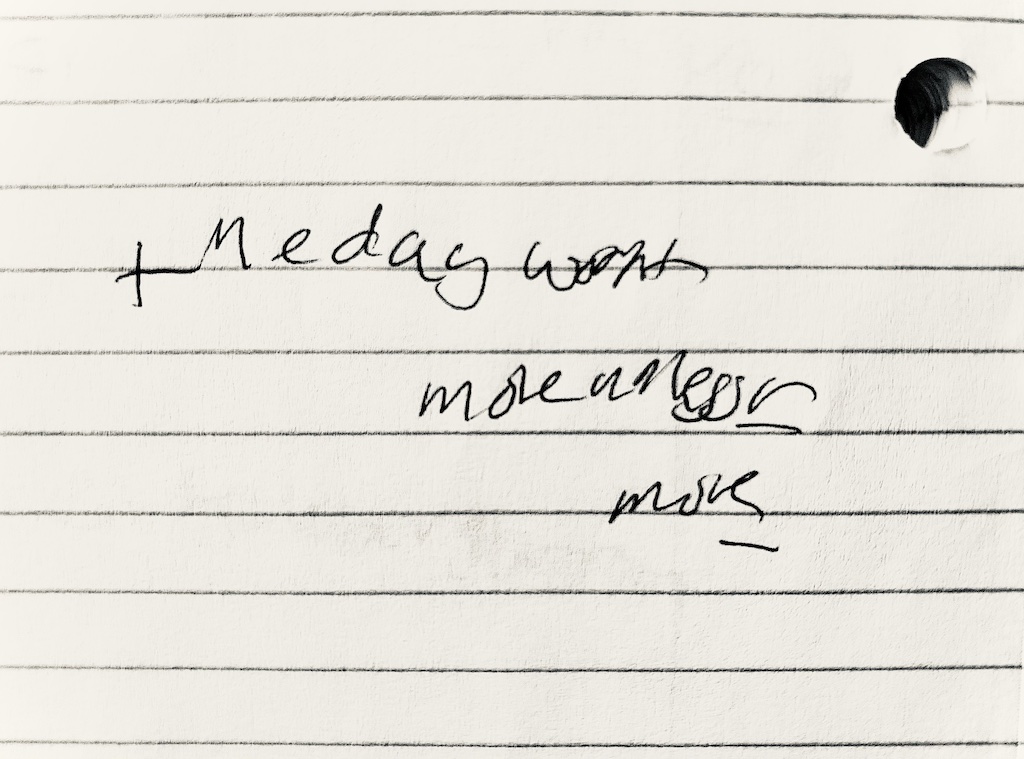 + Me day want
more unless
more